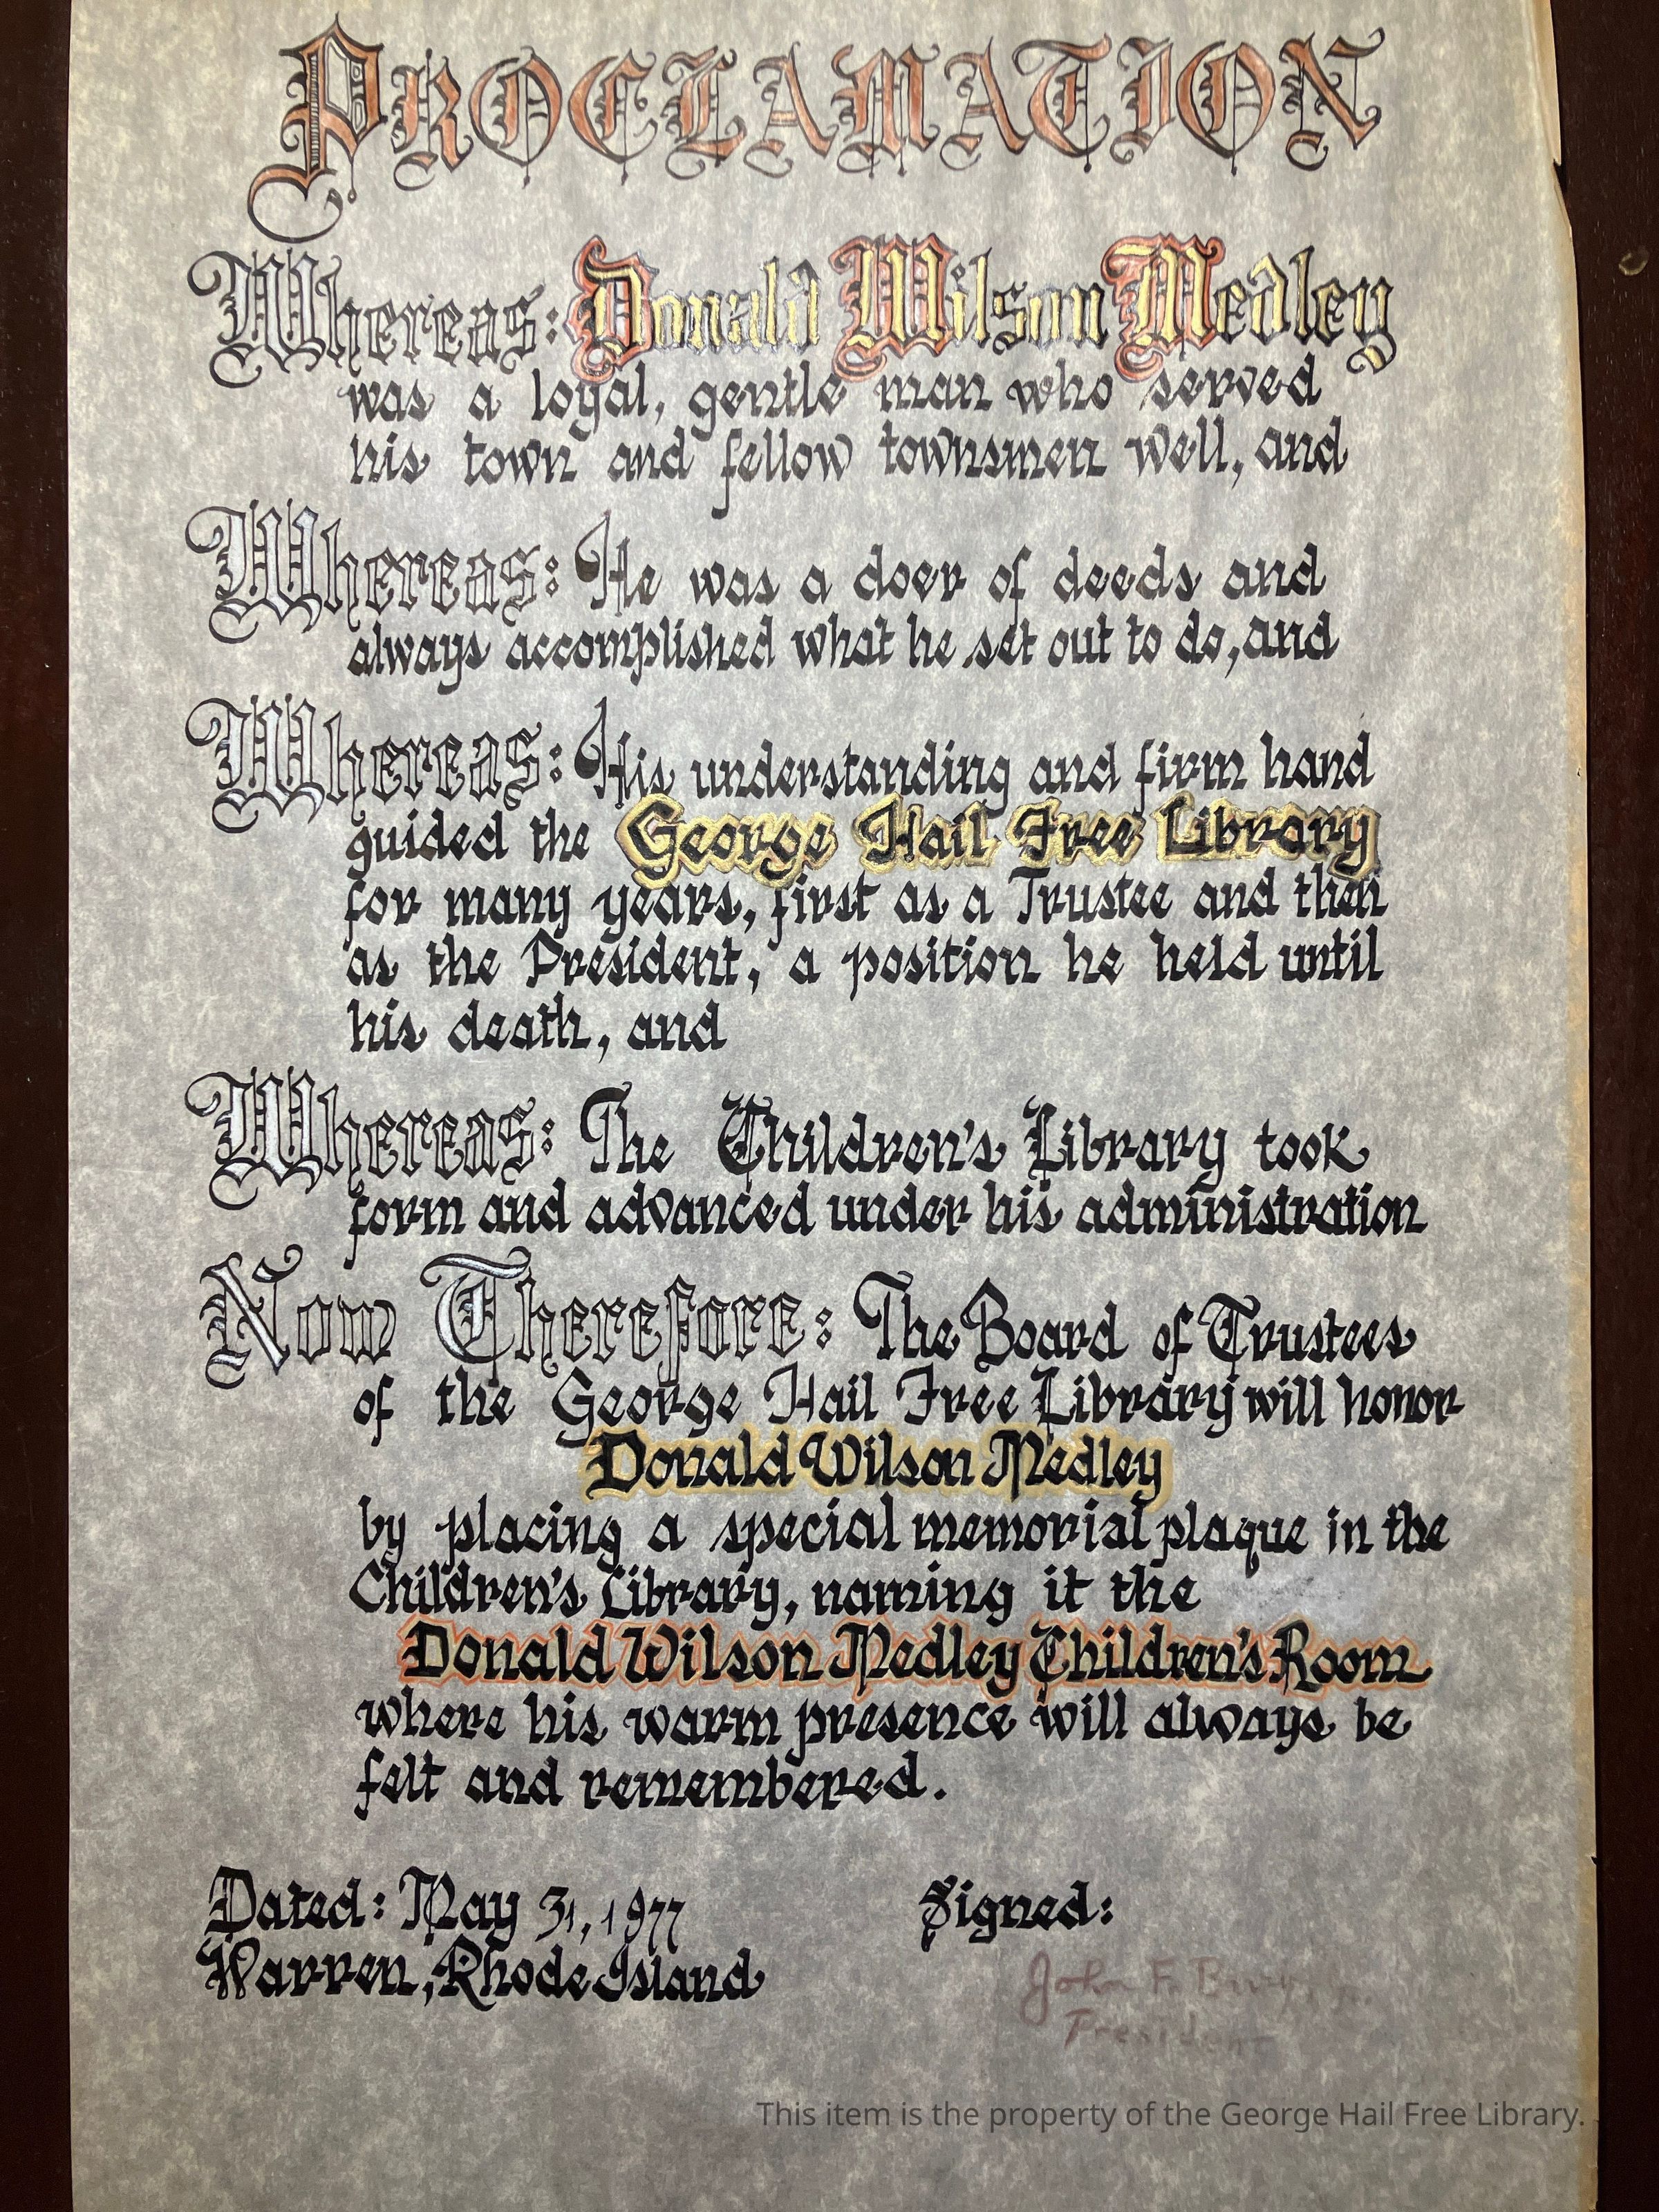 PROCLAMATION
Whereas: Donald Wilson Medley
was a loyal, gentle man who served
his town and fellow townsmen well, and
Whereas: He was a doer of deeds and
always accomplished what he set out to do, and
Whereas: His understanding and firm hand
guided the George Hail Free Library
for many years, first as a Trustee and then
as the President, a position he held until
his death, and
Whereas: The Children's Library took
form and advanced under his administration
Now Therefore: The Board of Trustees
of the George Hail Free Library will honor
Donald Wilson Medley
by placing a special memorial plaque in the
Children's Library, naming it the
Donald Wilson Medley Children's Room
where his warm presence will always be
felt and remembered.
Dated: May 31, 1977
Warren, Rhode Island
Signed:
John F.
President
This item is the property of the George Hail Free Library.